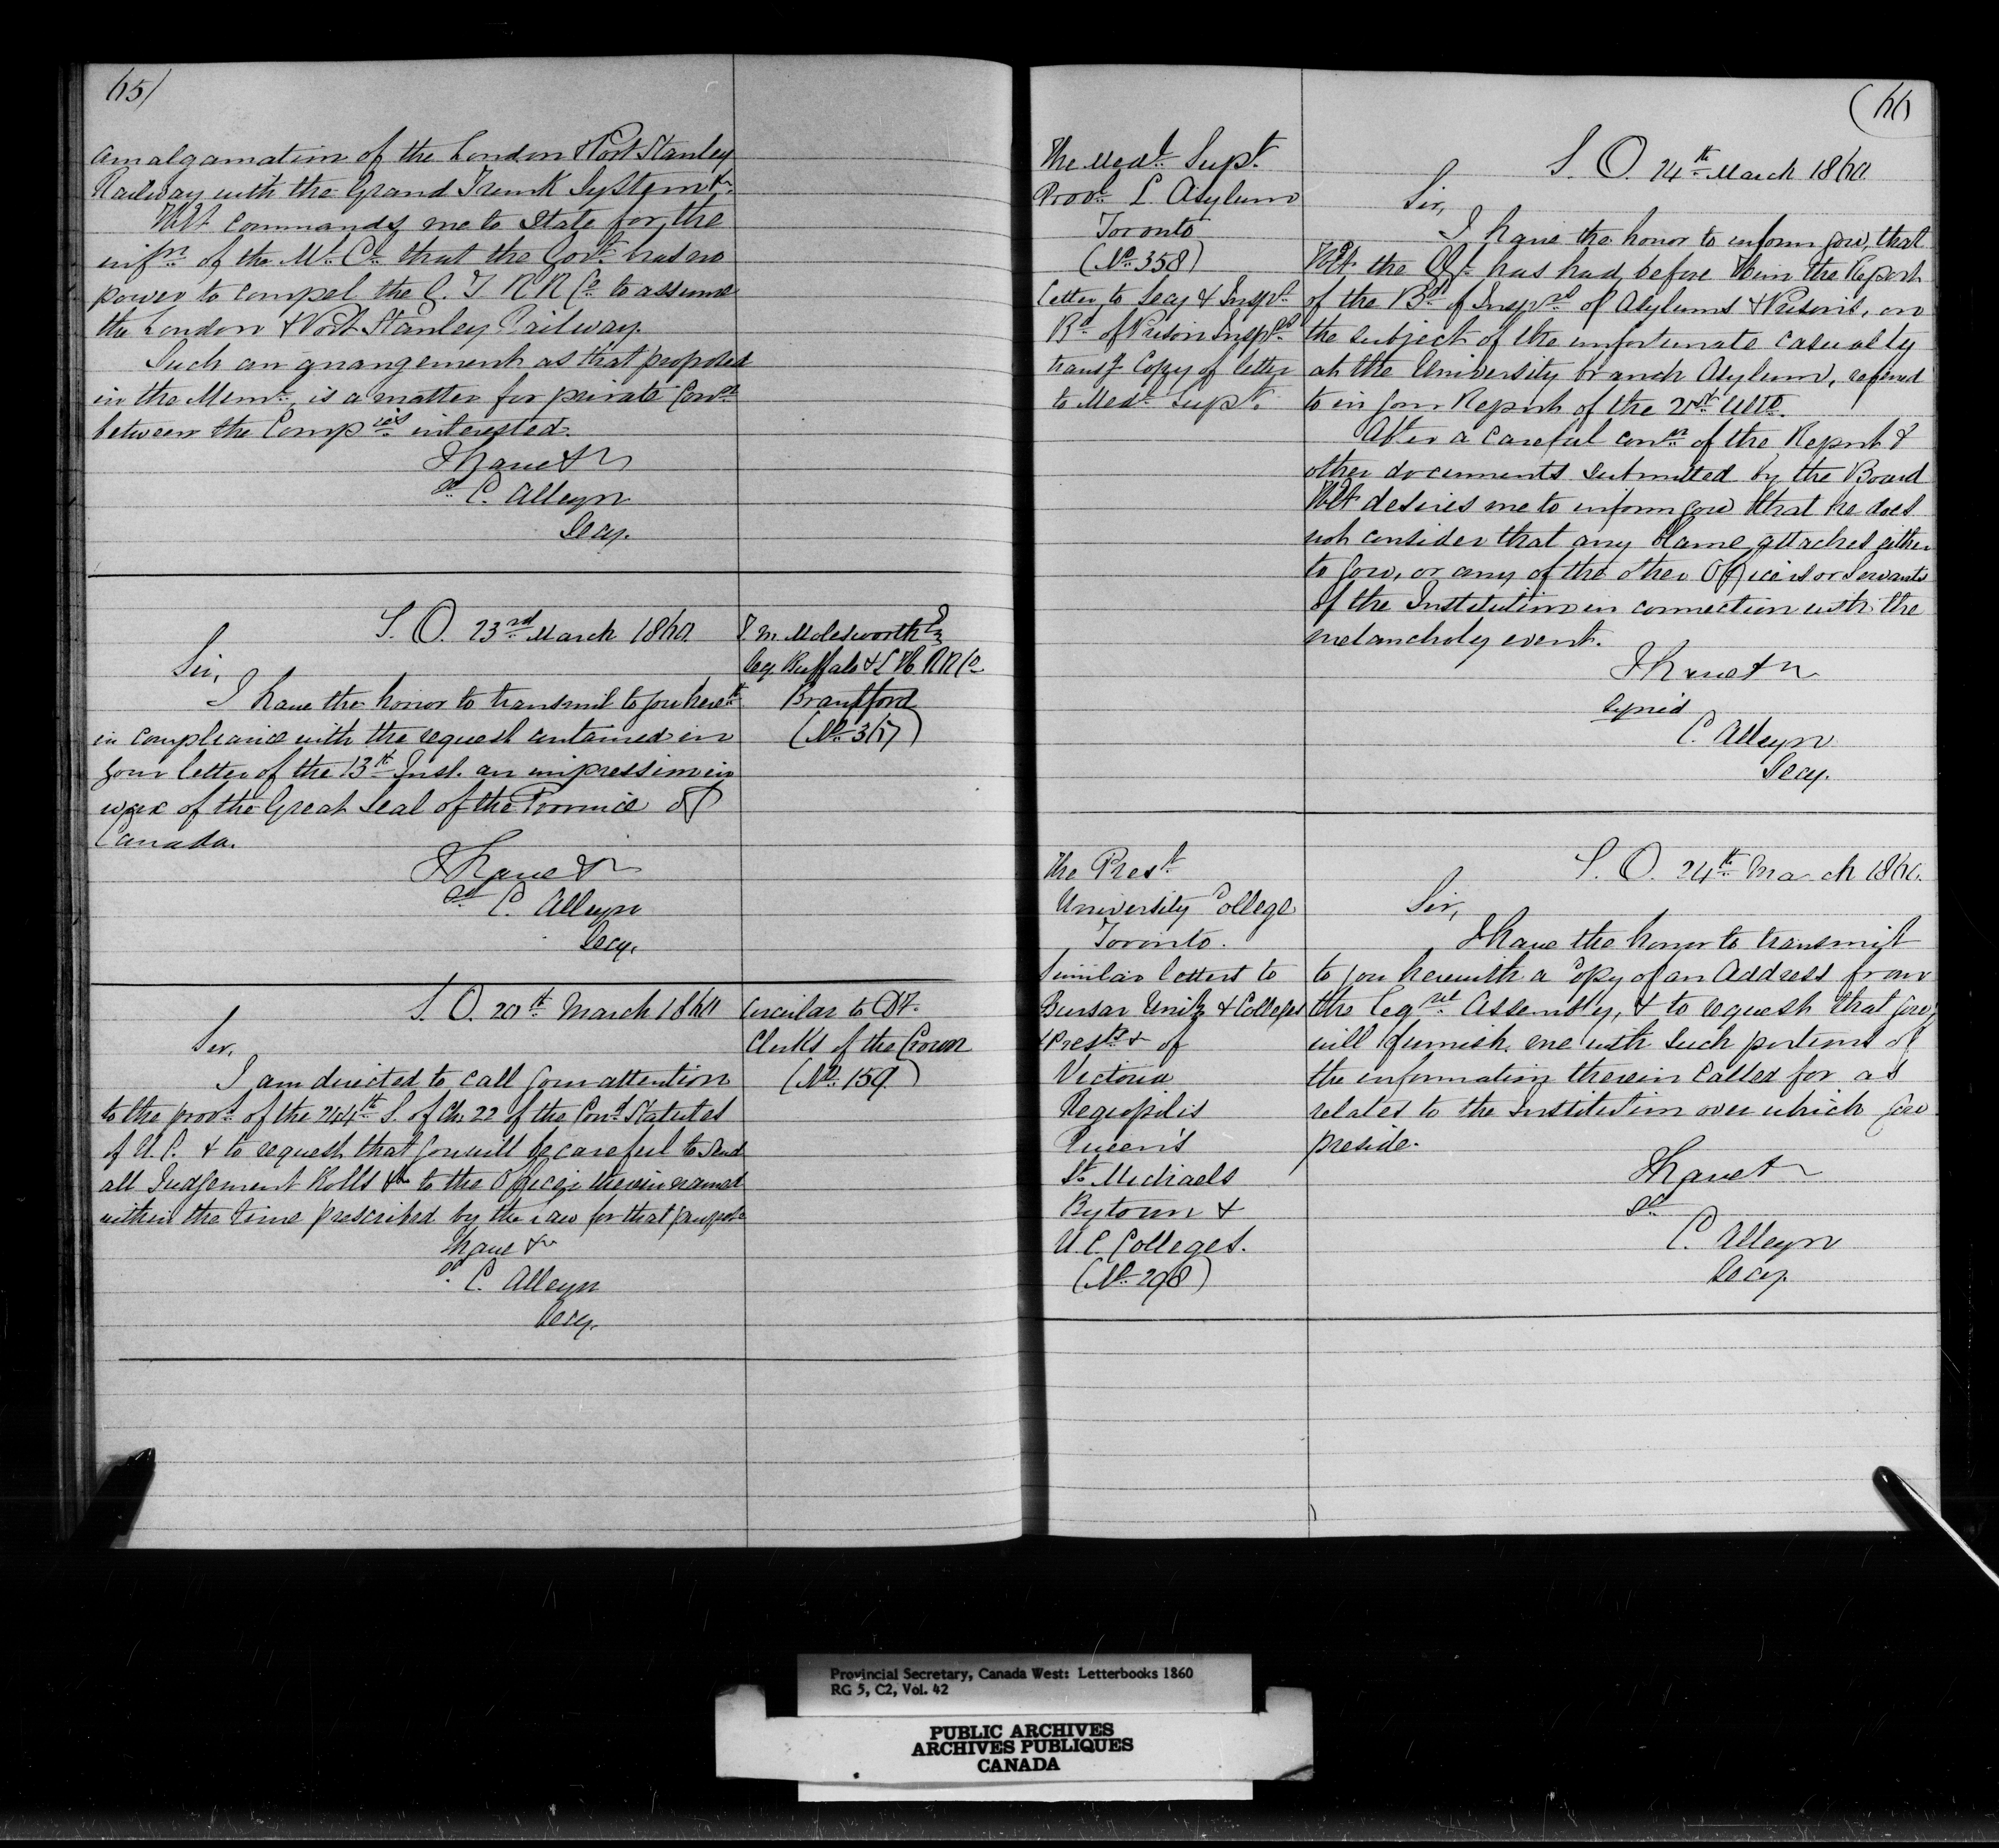 65/
amalgamation of the London & Port Stanley
Railway with the Grand Trunk System &c.
H E commands me to state for the
infn. of the Ml. Cl. that the Govt. has no
power to compel the G. T. R R Co. to assume
the London & Port Stanley Railway.
Such an arrangement as that proposed
in the Meml. is a matter for private Conn.
between the Companies interested.
I have &c
sd. C. Alleyn
Secy.
S. O. 23rd March 1860
T. M. Molesworth Esq
Secy Buffalo & L H R R Co
Brantford
(No. 367)
Sir,
I have the honor to transmit to you herewth.
in compliance with the request contained in
your letter of the 13th Inst. an impression in
wax of the Great Seal of the Province of
Canada.
I have &c
sd. C. Alleyn
Secy.
S. O. 20th March 1860
Circular to Dy.
Clerks of the Crown
(No. 159)
Sir,
I am directed to call your attention
to the provs. of the 244th S. of Ch. 22 of the Cond. Statutes
of U. C. & to request that you will be careful to send
all Judgement Rolls &c to the Officer therein named
within the time prescribed by the law for that purpose
I have &c
sd. C. Alleyn
Secy.
(66
The Medl. Supt.
Provl. L. Asylum
Toronto
(No. 358)
Letter to Secy &
Bd. of Prison Insprs.
transg Copy of letter
to Medl. Supt.
S. O. 24th March 1860
Sir,
I have the honor to inform you, that
H E the has had before Him the Report
of the Bd. of Insprs. of Asylums & Prisons, on
the subject of the unfortunate casualty
at the University branch Asylum, referred
to in your Report of the Ulto.
After a careful conn. of the Report &
other documents submitted by the Board
H E desires me to inform you that he does
not consider that any blame attaches either
to you, or any of the other Officers or Servants
of the Institution in connection with the
melancholy event.
I have &c
signed
C. Alleyn
Secy.
The Prest.
University College
Toronto.
Similar letters to
Bursar Unity & Colleges
Prests & of
Victoria
Regiopolis
Queen's
St. Michaels
Bytown &
U. C. Colleges.
(No. 298)
S. O. 24th March 1860.
Sir,
I have the honor to transmit
to you herewith a Copy of an Address from
the Legve. Assembly, & to request that you
will furnish me with such portions of
the information therein called for as
relates to the Institution over which you
preside.
I have &c
sd
C. Alleyn
Secy.
Provincial Secretary, Canada West: Letterbooks 1860
RG 5, C2, Vol. 42
PUBLIC ARCHIVES
ARCHIVES PUBLIQUES
CANADA